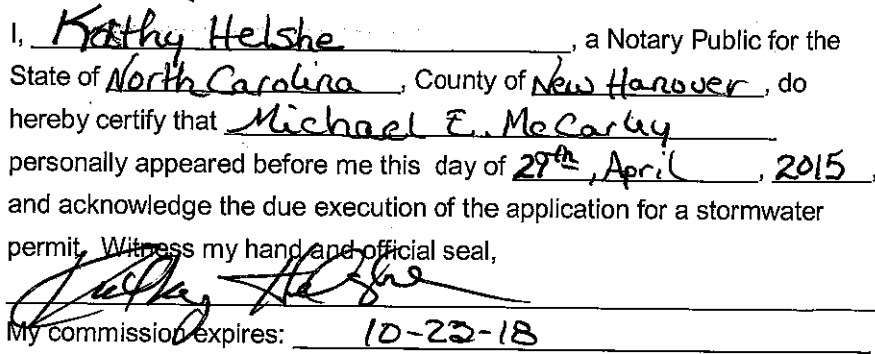 I, Kathy Helshe, a Notary Public for the
State of North Carolina, County of New Hanover, do
hereby certify that Michael E. McCarley
personally appeared before me this day of 29th, April, 2015,
and acknowledge the due execution of the application for a stormwater
permit. Witness my hand and official seal,
Kathy Helshe
My commission expires: 10-22-18